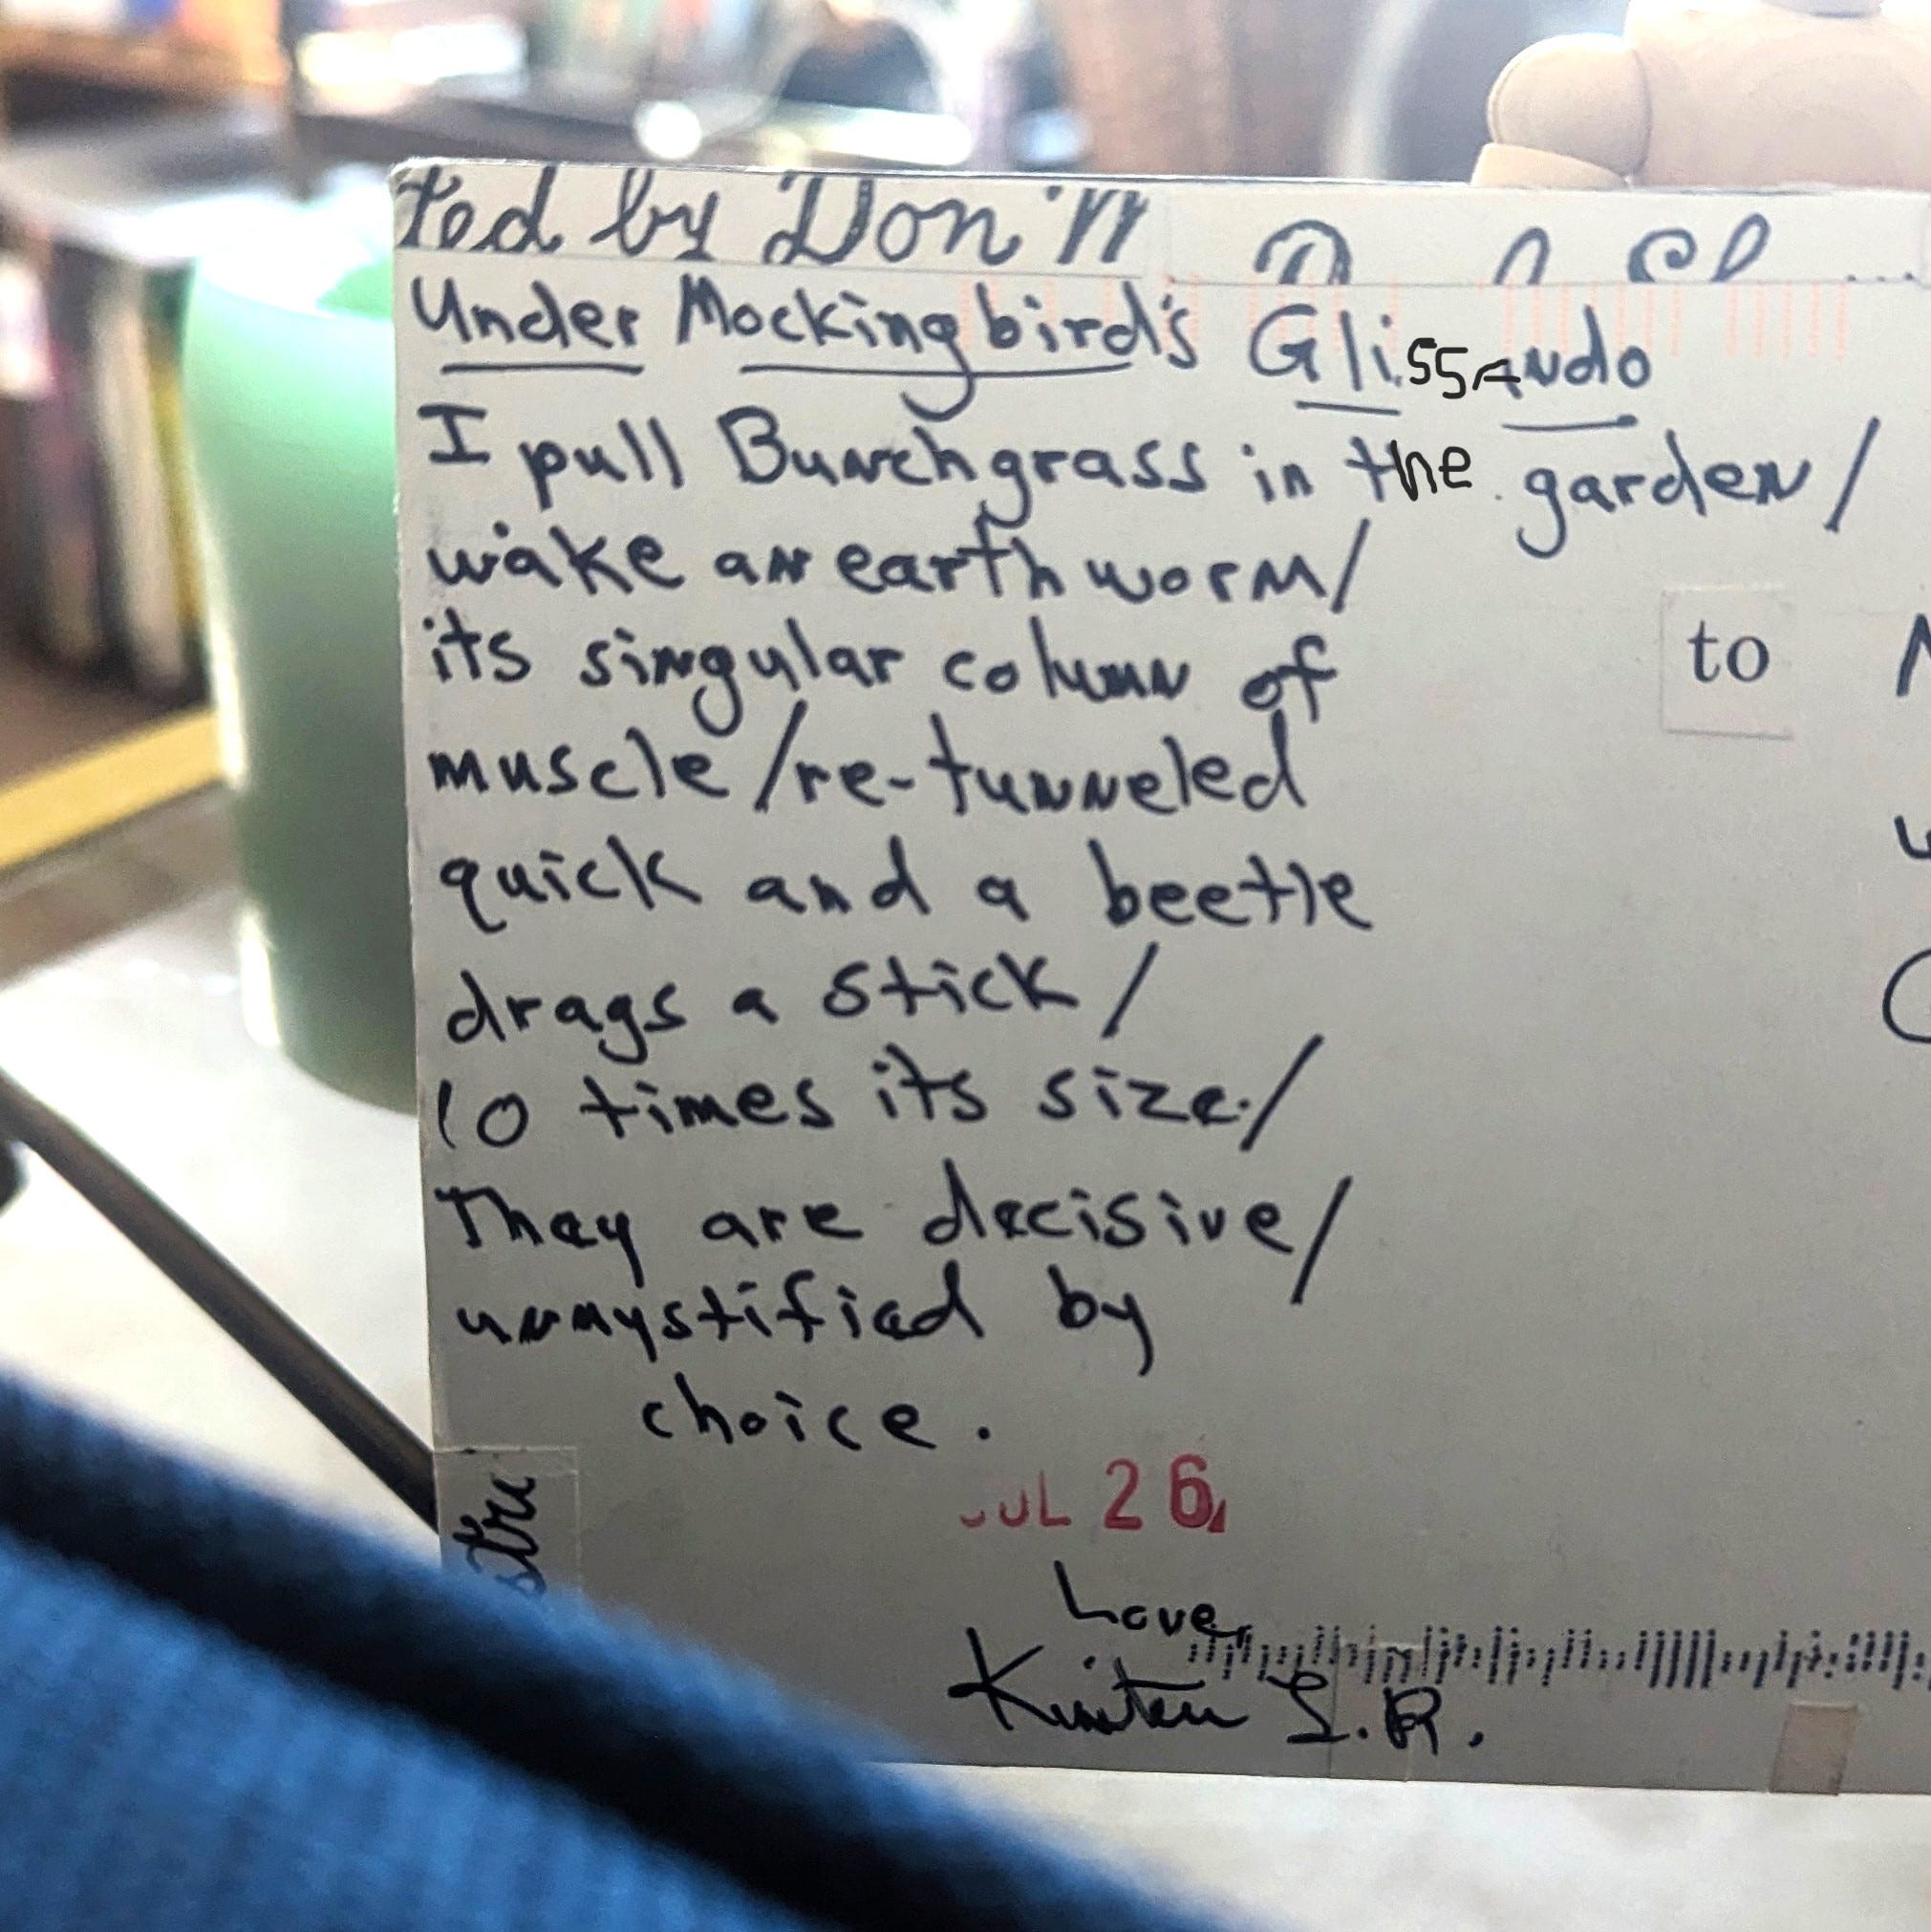 ted by Don'n
Under Mockingbird's Glissando
I pull Bunchgrass in the garden/
wake an earth worm/
its singular column of
to
muscle/re-tunneled
quick and a beetle
drags a stick/
10 times its size./
They are decisive/
unmystified by
choice.
JUL 26
stri
Love,
Kirsten S.R.